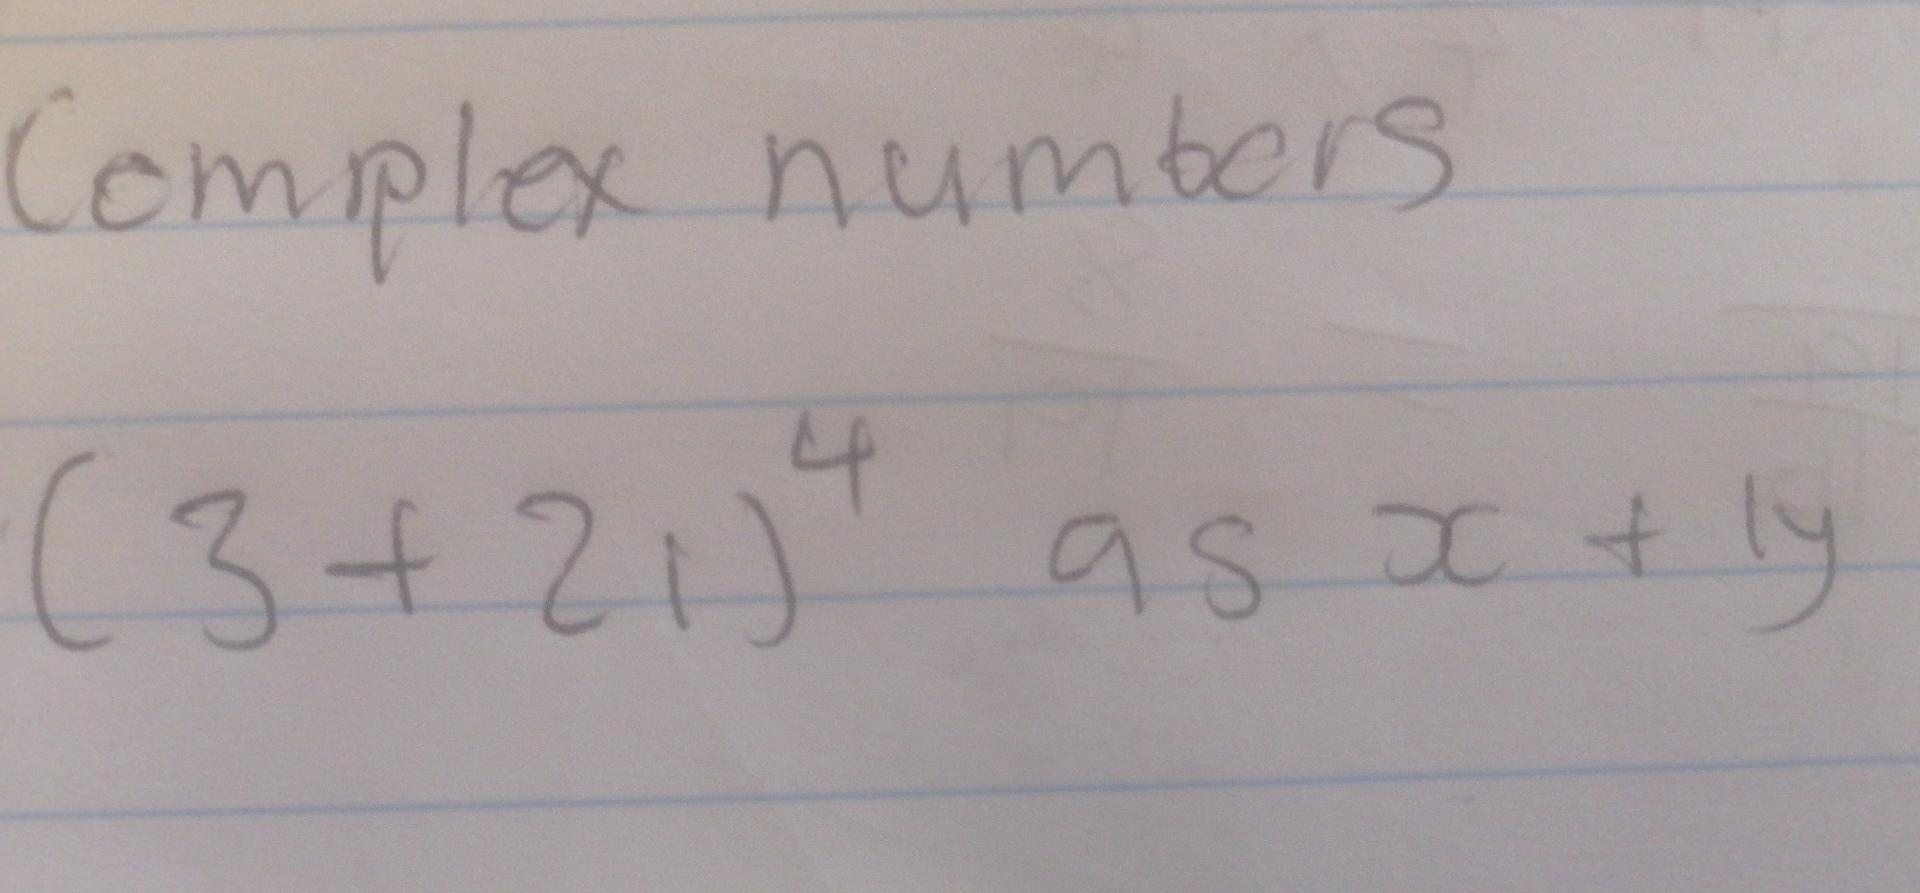 Complex numbers
(3+2i)⁴ as x + iy